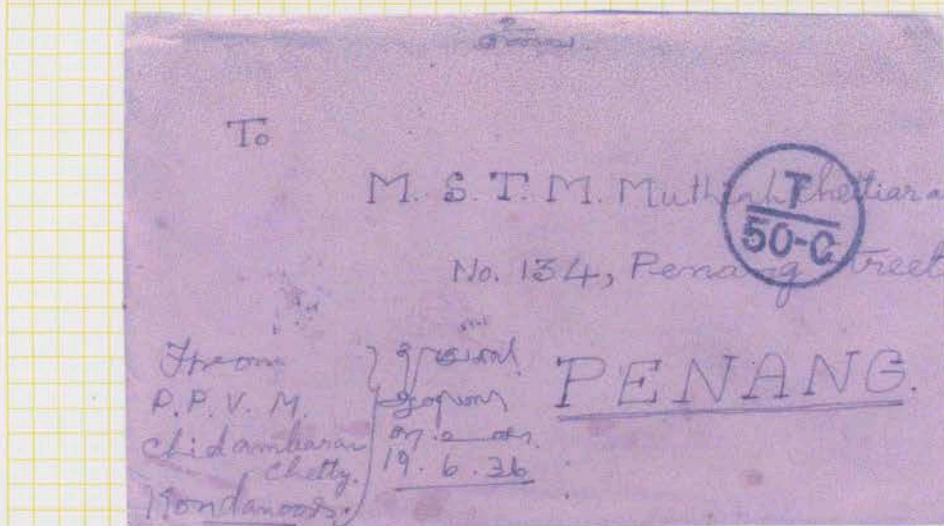 To
M. S. T. M. Muthiah Chettiar
No. 134, Penang Street
T
50-C
PENANG.
From
P. P. V. M.
Chidambaram
Chetty.
Kondanoor.
19. 6. 36